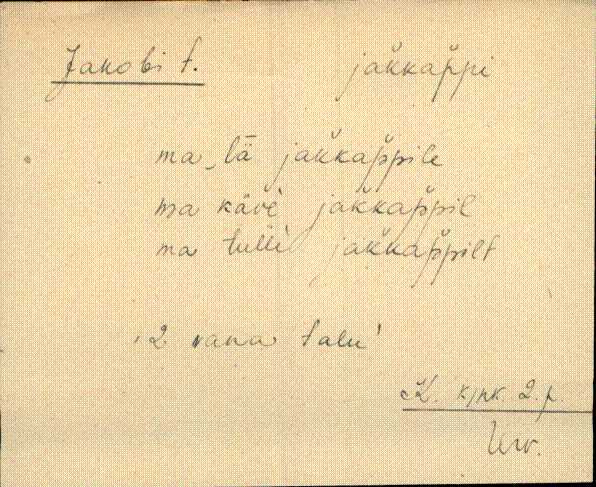 Jakobi t. jak̆kap̆pi
ma_lä jak̆kap̆pile
ma kävè jak̆kap̆pil
ma tullì jak̆kap̆pilt
2 vana talu'
K. kjnk. 2. p.
Urv.